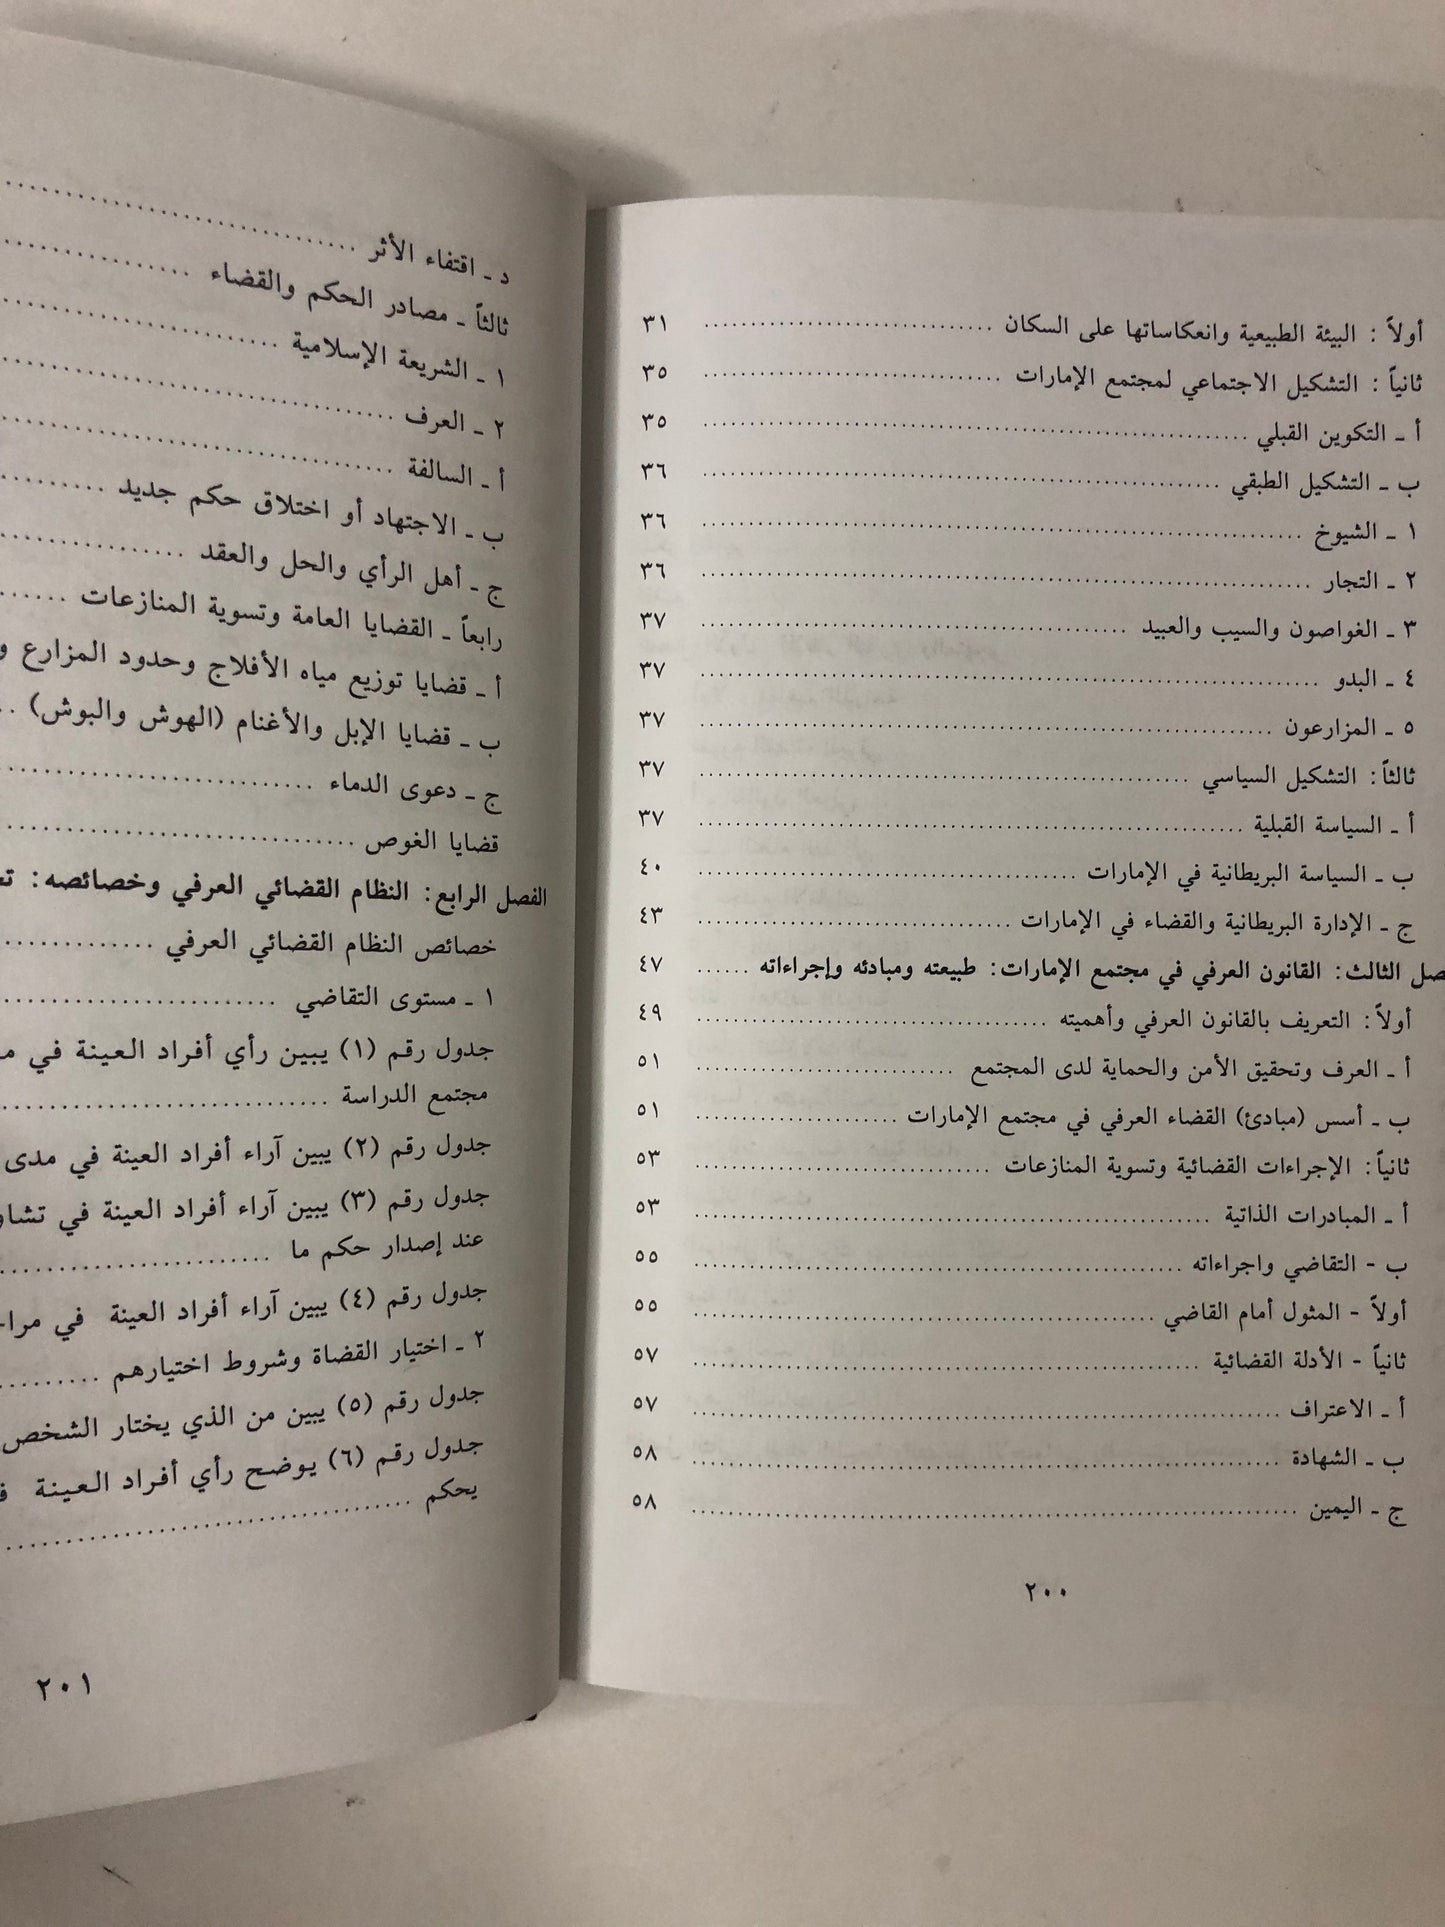 أولاً : البيئة الطبيعية وانعكاساتها على السكان ............................... ٣١
ثانياً : التشكيل الاجتماعي لمجتمع الإمارات ............................... ٣٥
أ ـ التكوين القبلي ............................... ٣٥
ب ـ التشكيل الطبقي ............................... ٣٦
١ ـ الشيوخ ............................... ٣٦
٢ ـ التجار ............................... ٣٦
٣ ـ الغواصون والسيب والعبيد ............................... ٣٧
٤ ـ البدو ............................... ٣٧
٥ ـ المزارعون ............................... ٣٧
ثالثاً : التشكيل السياسي ............................... ٣٧
أ ـ السياسة القبلية ............................... ٣٧
ب ـ السياسة البريطانية في الإمارات ............................... ٤٠
ج ـ الإدارة البريطانية والقضاء في الإمارات ............................... ٤٣
صل الثالث: القانون العرفي في مجتمع الإمارات: طبيعته ومبادئه وإجراءاته ...... ٤٧
أولاً : التعريف بالقانون العرفي وأهميته ............................... ٤٩
أ ـ العرف وتحقيق الأمن والحماية لدى المجتمع ............................... ٥١
ب ـ أسس (مبادئ) القضاء العرفي في مجتمع الإمارات ....................... ٥١
ثانياً : الإجراءات القضائية وتسوية المنازعات ............................... ٥٣
أ ـ المبادرات الذاتية ............................... ٥٣
ب - التقاضي واجراءاته ............................... ٥٥
أولاً - المثول أمام القاضي ............................... ٥٥
ثانياً - الأدلة القضائية ............................... ٥٧
أ ـ الاعتراف ............................... ٥٧
ب ـ الشهادة ............................... ٥٨
ج ـ اليمين ............................... ٥٨
٢٠٠
د ـ اقتفاء الأثر ...............................
ثالثاً ـ مصادر الحكم والقضاء ................
١ ـ الشريعة الإسلامية ........................
٢ ـ العرف ...............................
أ ـ السالفة ...............................
ب ـ الاجتهاد أو اختلاق حكم جديد .........
ج ـ أهل الرأي والحل والعقد ................
رابعاً ـ القضايا العامة وتسوية المنازعات ......
أ ـ قضايا توزيع مياه الأفلاج وحدود المزارع و
ب ـ قضايا الإبل والأغنام (الهوش والبوش) ..
ج ـ دعوى الدماء ...........................
قضايا الغوص ...............................
الفصل الرابع: النظام القضائي العرفي وخصائصه:
خصائص النظام القضائي العرفي .............
١ ـ مستوى التقاضي ........................
جدول رقم (١) يبين رأي أفراد العينة في
مجتمع الدراسة ............................
جدول رقم (٢) يبين آراء أفراد العينة في مدى
جدول رقم (٣) يبين آراء أفراد العينة في تشاو
عند إصدار حكم ما ........................
جدول رقم (٤) يبين آراء أفراد العينة في مرا
٢ ـ اختيار القضاة وشروط اختيارهم .........
جدول رقم (٥) يبين من الذي يختار الشخص
جدول رقم (٦) يوضح رأي أفراد العينة
يحكم ...............................
٢٠١